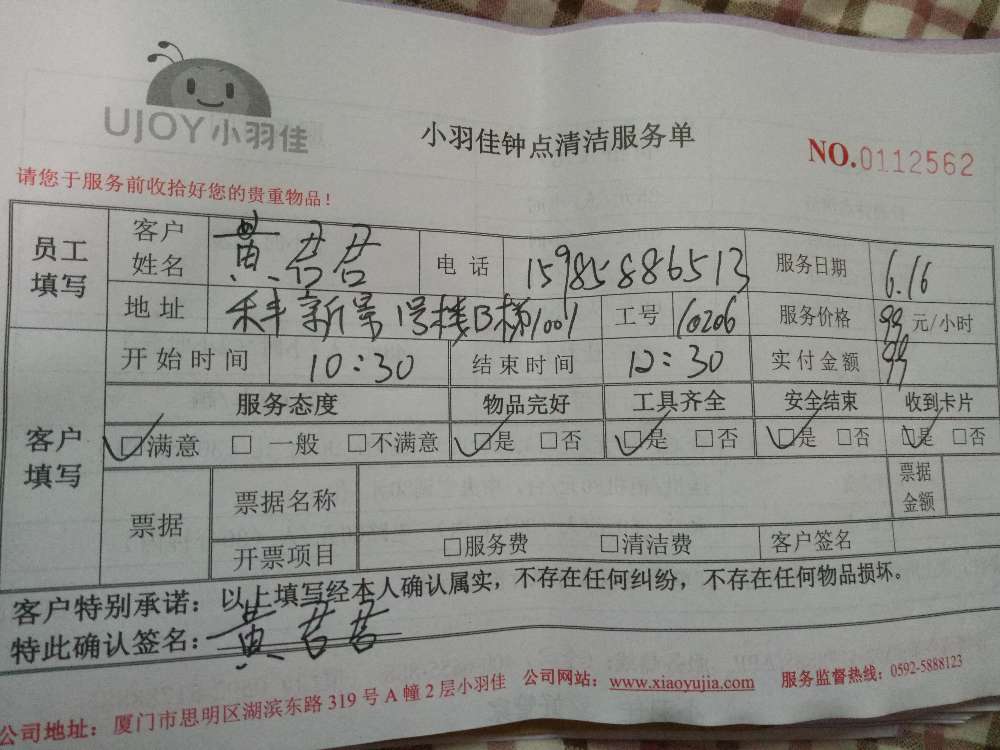 UJOY小羽佳
小羽佳钟点清洁服务单
NO.0112562
请您于服务前收拾好您的贵重物品！
员工填写 客户姓名 黄君君 电话 15985886513 服务日期 6.16
地址 新景 号楼B梯1001 工号 10206 服务价格 99 元/小时
客户填写 开始时间 10:30 结束时间 12:30 实付金额 99
服务态度 物品完好 工具齐全 安全结束 收到卡片
☑满意 □一般 □不满意 ☑是 □否 ☑是 □否 ☑是 □否 ☑是 □否
票据 票据名称 票据金额
开票项目 □服务费 □清洁费 客户签名
客户特别承诺：以上填写经本人确认属实，不存在任何纠纷，不存在任何物品损坏。
特此确认签名：黄君君
公司地址：厦门市思明区湖滨东路319号A幢2层小羽佳 公司网站：www.xiaoyujia.com 服务监督热线：0592-5888123